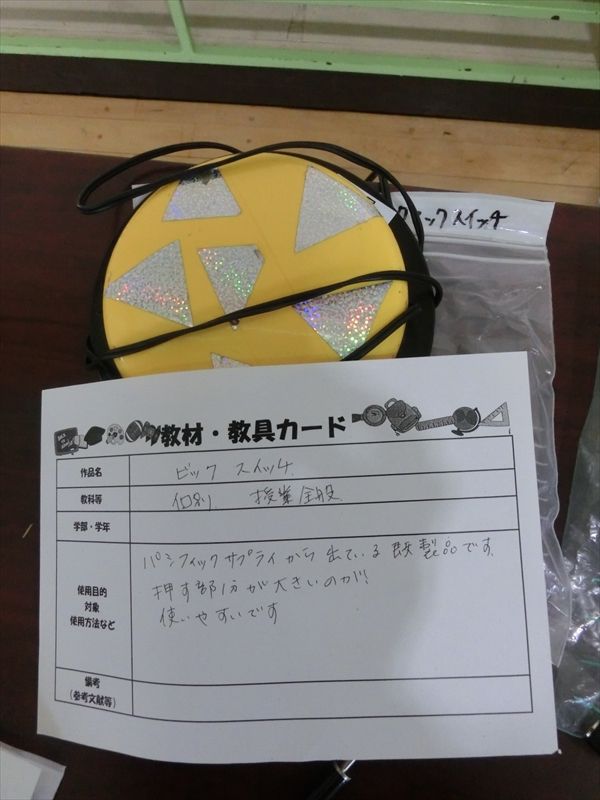 ックスイッチ
教材・教具カード
作品名 ビック スイッチ
教科等 個別 授業全般
学部・学年
使用目的
対象
使用方法など
パシフィックサプライから出ている既製品です。
押す部分が大きいのが
使いやすいです
備考
(参考文献等)